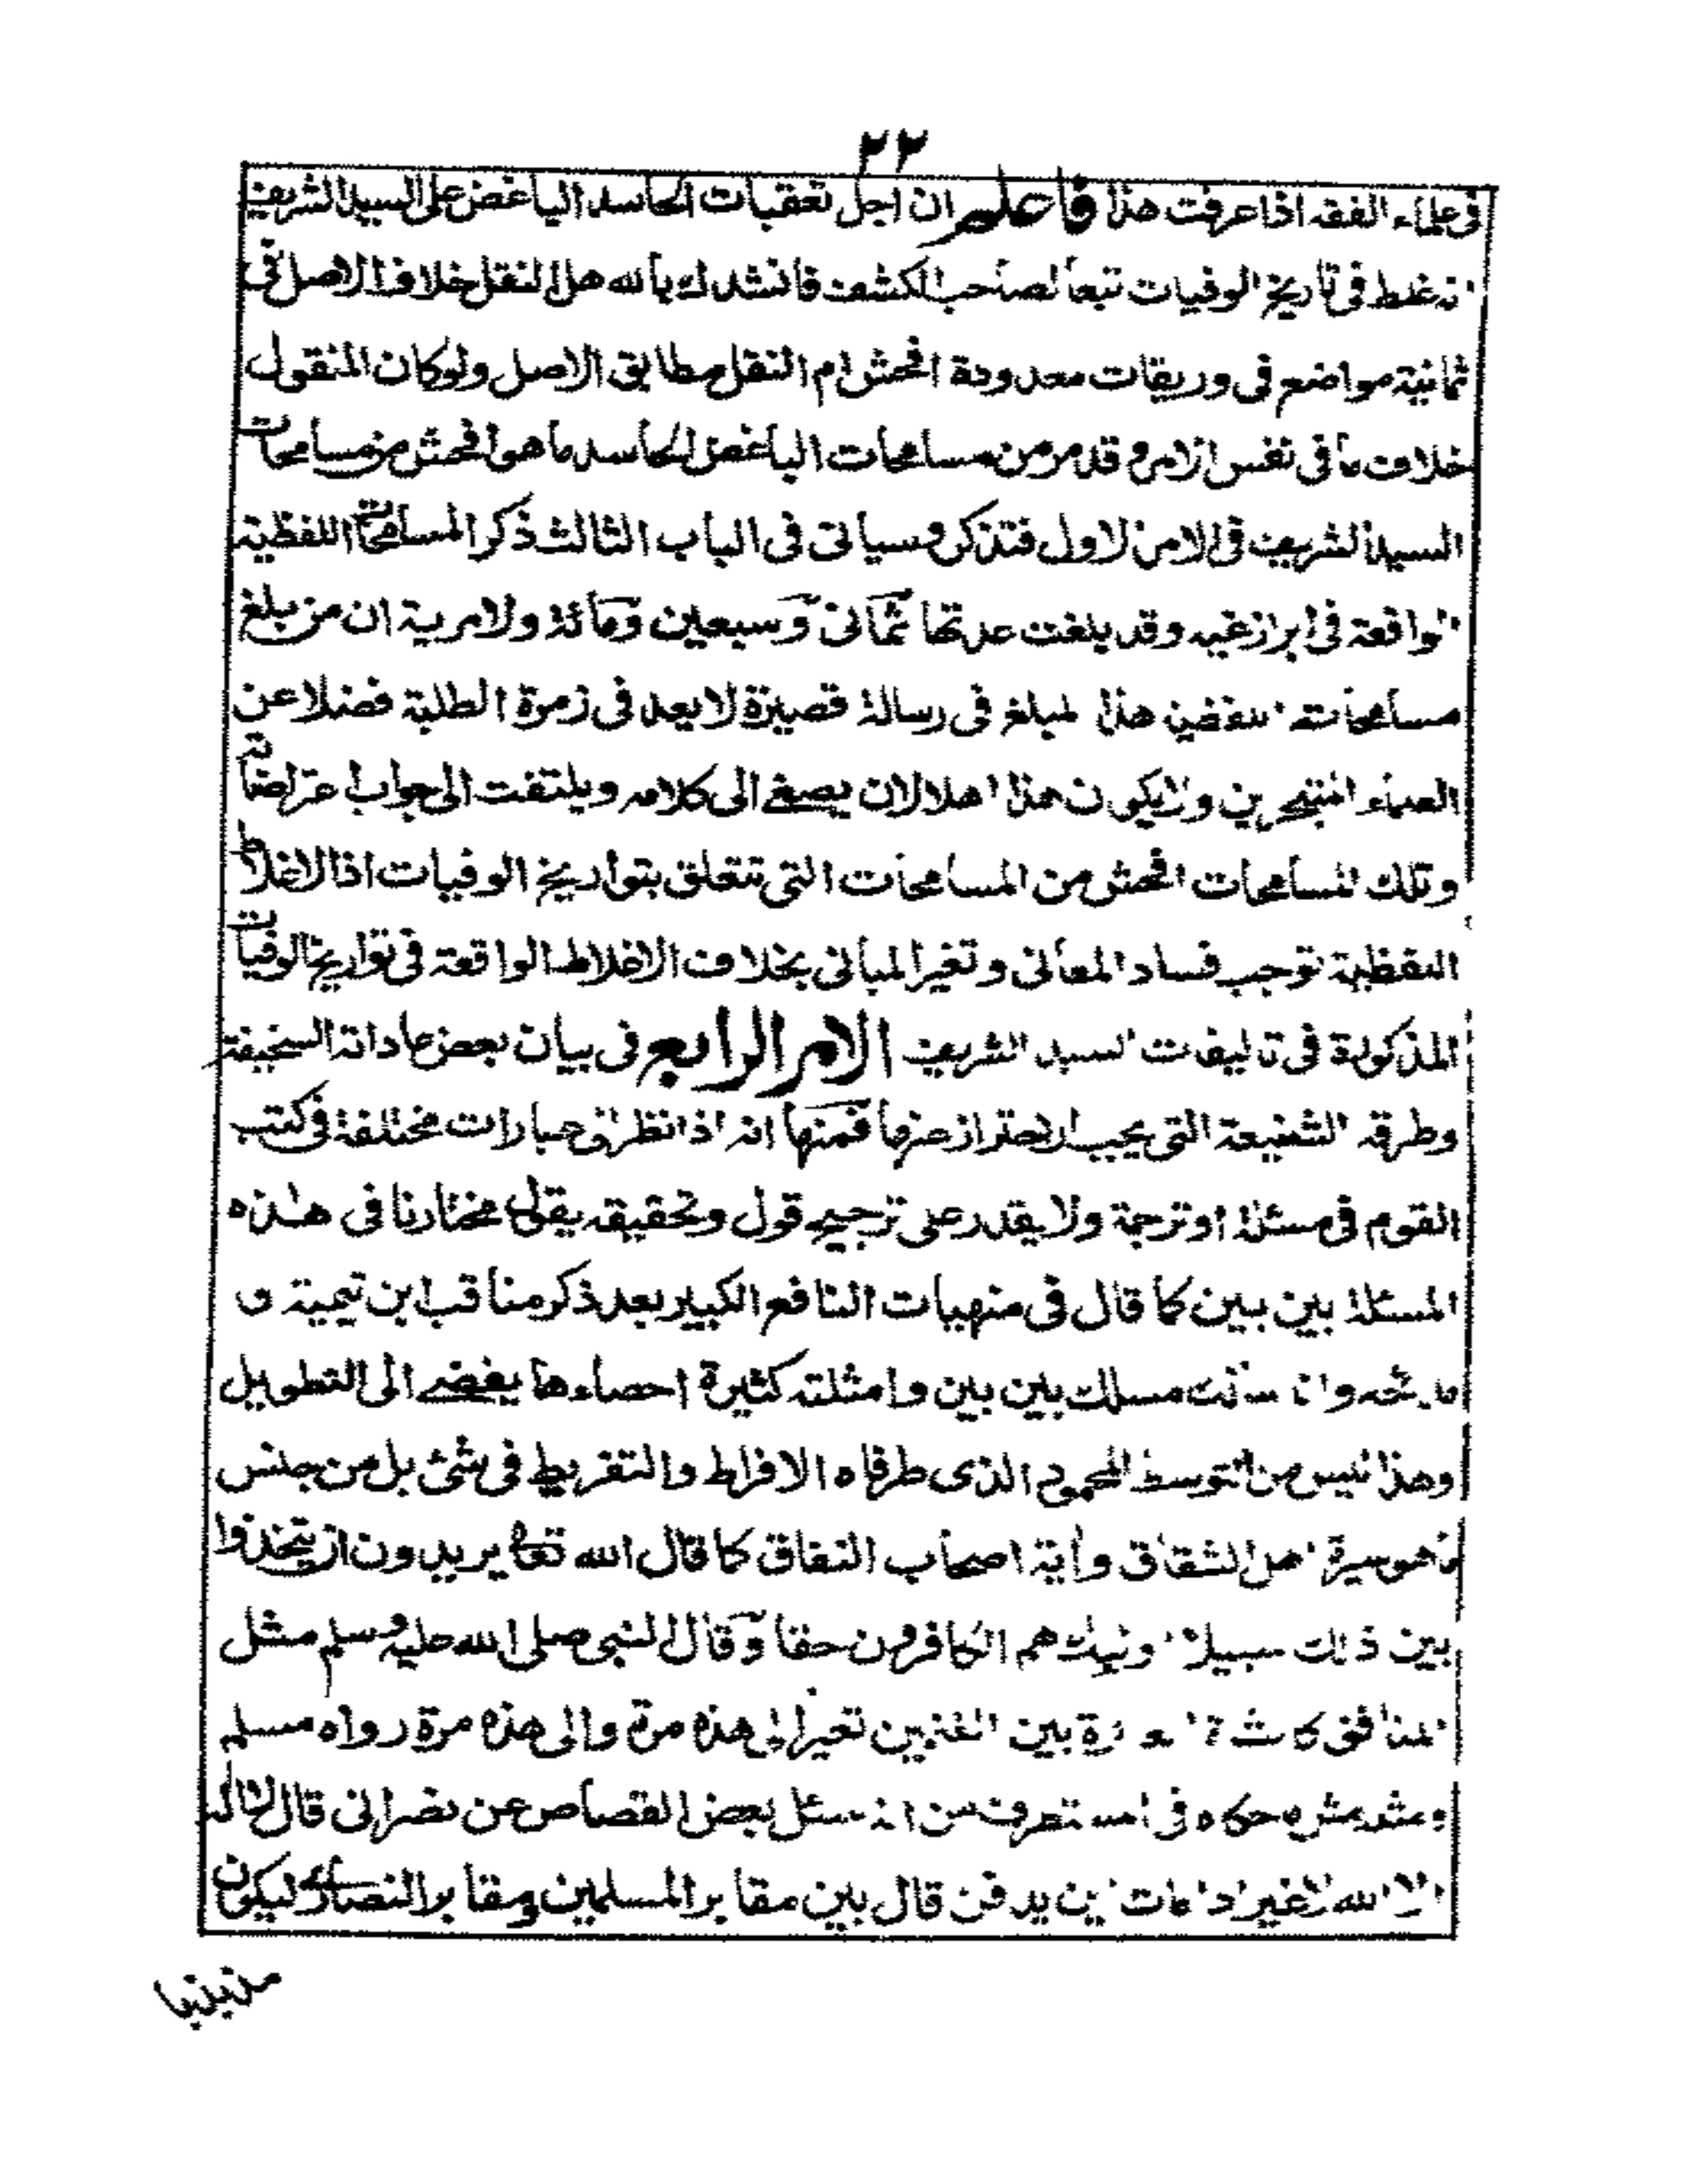 ٢٢
فى علماء الفقه اذا عرفت هذا فاعلم ان اجل تعقبات الحاسد الباغض على السيد الشريف
انه غلط فى تاريخ الوفيات تبعا لصاحب الكشف فانشدك بالله هل النقل خلاف الاصل فى
ثمانية مواضع فى وريقات معدودة افحش ام النقل مطابق الاصل ولو كان المنقول
خلاف ما فى نفس الامر وقد مر من مسامحات الباغض الحاسد ما هو افحش من مسامحات
السيد الشريف فى الامر الاول فتذكر وسياتى فى الباب الثالث ذكر المسامحات اللفظية
الواقعة فى ابراز غيه وقد بلغت عدتها ثمانى وسبعين ومائة ولا مرية ان من بلغ
مسامحاته اللفظية هذا المبلغ فى رسالة قصيرة لا يعد فى زمرة الطلبة فضلا عن
العلماء المتبحرين ولا يكون هذا اهلا لان يصغى الى كلامه ويلتفت الى جواب اعتراضاته
وتلك المسامحات افحش من المسامحات التى تتعلق بتواريخ الوفيات اذ الاغلاط
اللفظية توجب فساد المعانى وتغير المبانى بخلاف الاغلاط الواقعة فى تواريخ الوفيات
المذكورة فى تاليفات السيد الشريف الامر الرابع فى بيان بعض عاداته السخيفة
وطرقه الشنيعة التى يجب الاحتراز عنها فمنها انه اذا نظر الى عبارات مختلفة فى كتب
القوم فى مسئلة او ترجمة ولا يقدر على ترجيح قول وتحقيقه يقول مختارنا فى هذه
المسئلة بين بين كما قال فى منهيات النافع الكبير بعد ذكر مناقب ابن تيمية و
مسلك بين بين وامثلته كثيرة احصاءها يفضى الى التطويل
وهذا ليس من التوسط المحمود الذى طرفاه الافراط والتفريط فى شئ بل من جنس
ما هو سيرة اهل الشقاق وأية اصحاب النفاق كما قال الله تعالى يريدون ان يتخذوا
بين ذلك سبيلا اولئك هم الكافرون حقا وقال النبى صلى الله عليه وسلم مثل
المنافق كالشاة العائرة بين الغنمين تعير الى هذه مرة والى هذه مرة رواه مسلم
حكاه فى المستطرف من انه سئل بعض القصاص عن نصرانى قال لا اله
الا الله لا غير اذا مات اين يدفن قال بين مقابر المسلمين ومقابر النصارى ليكون